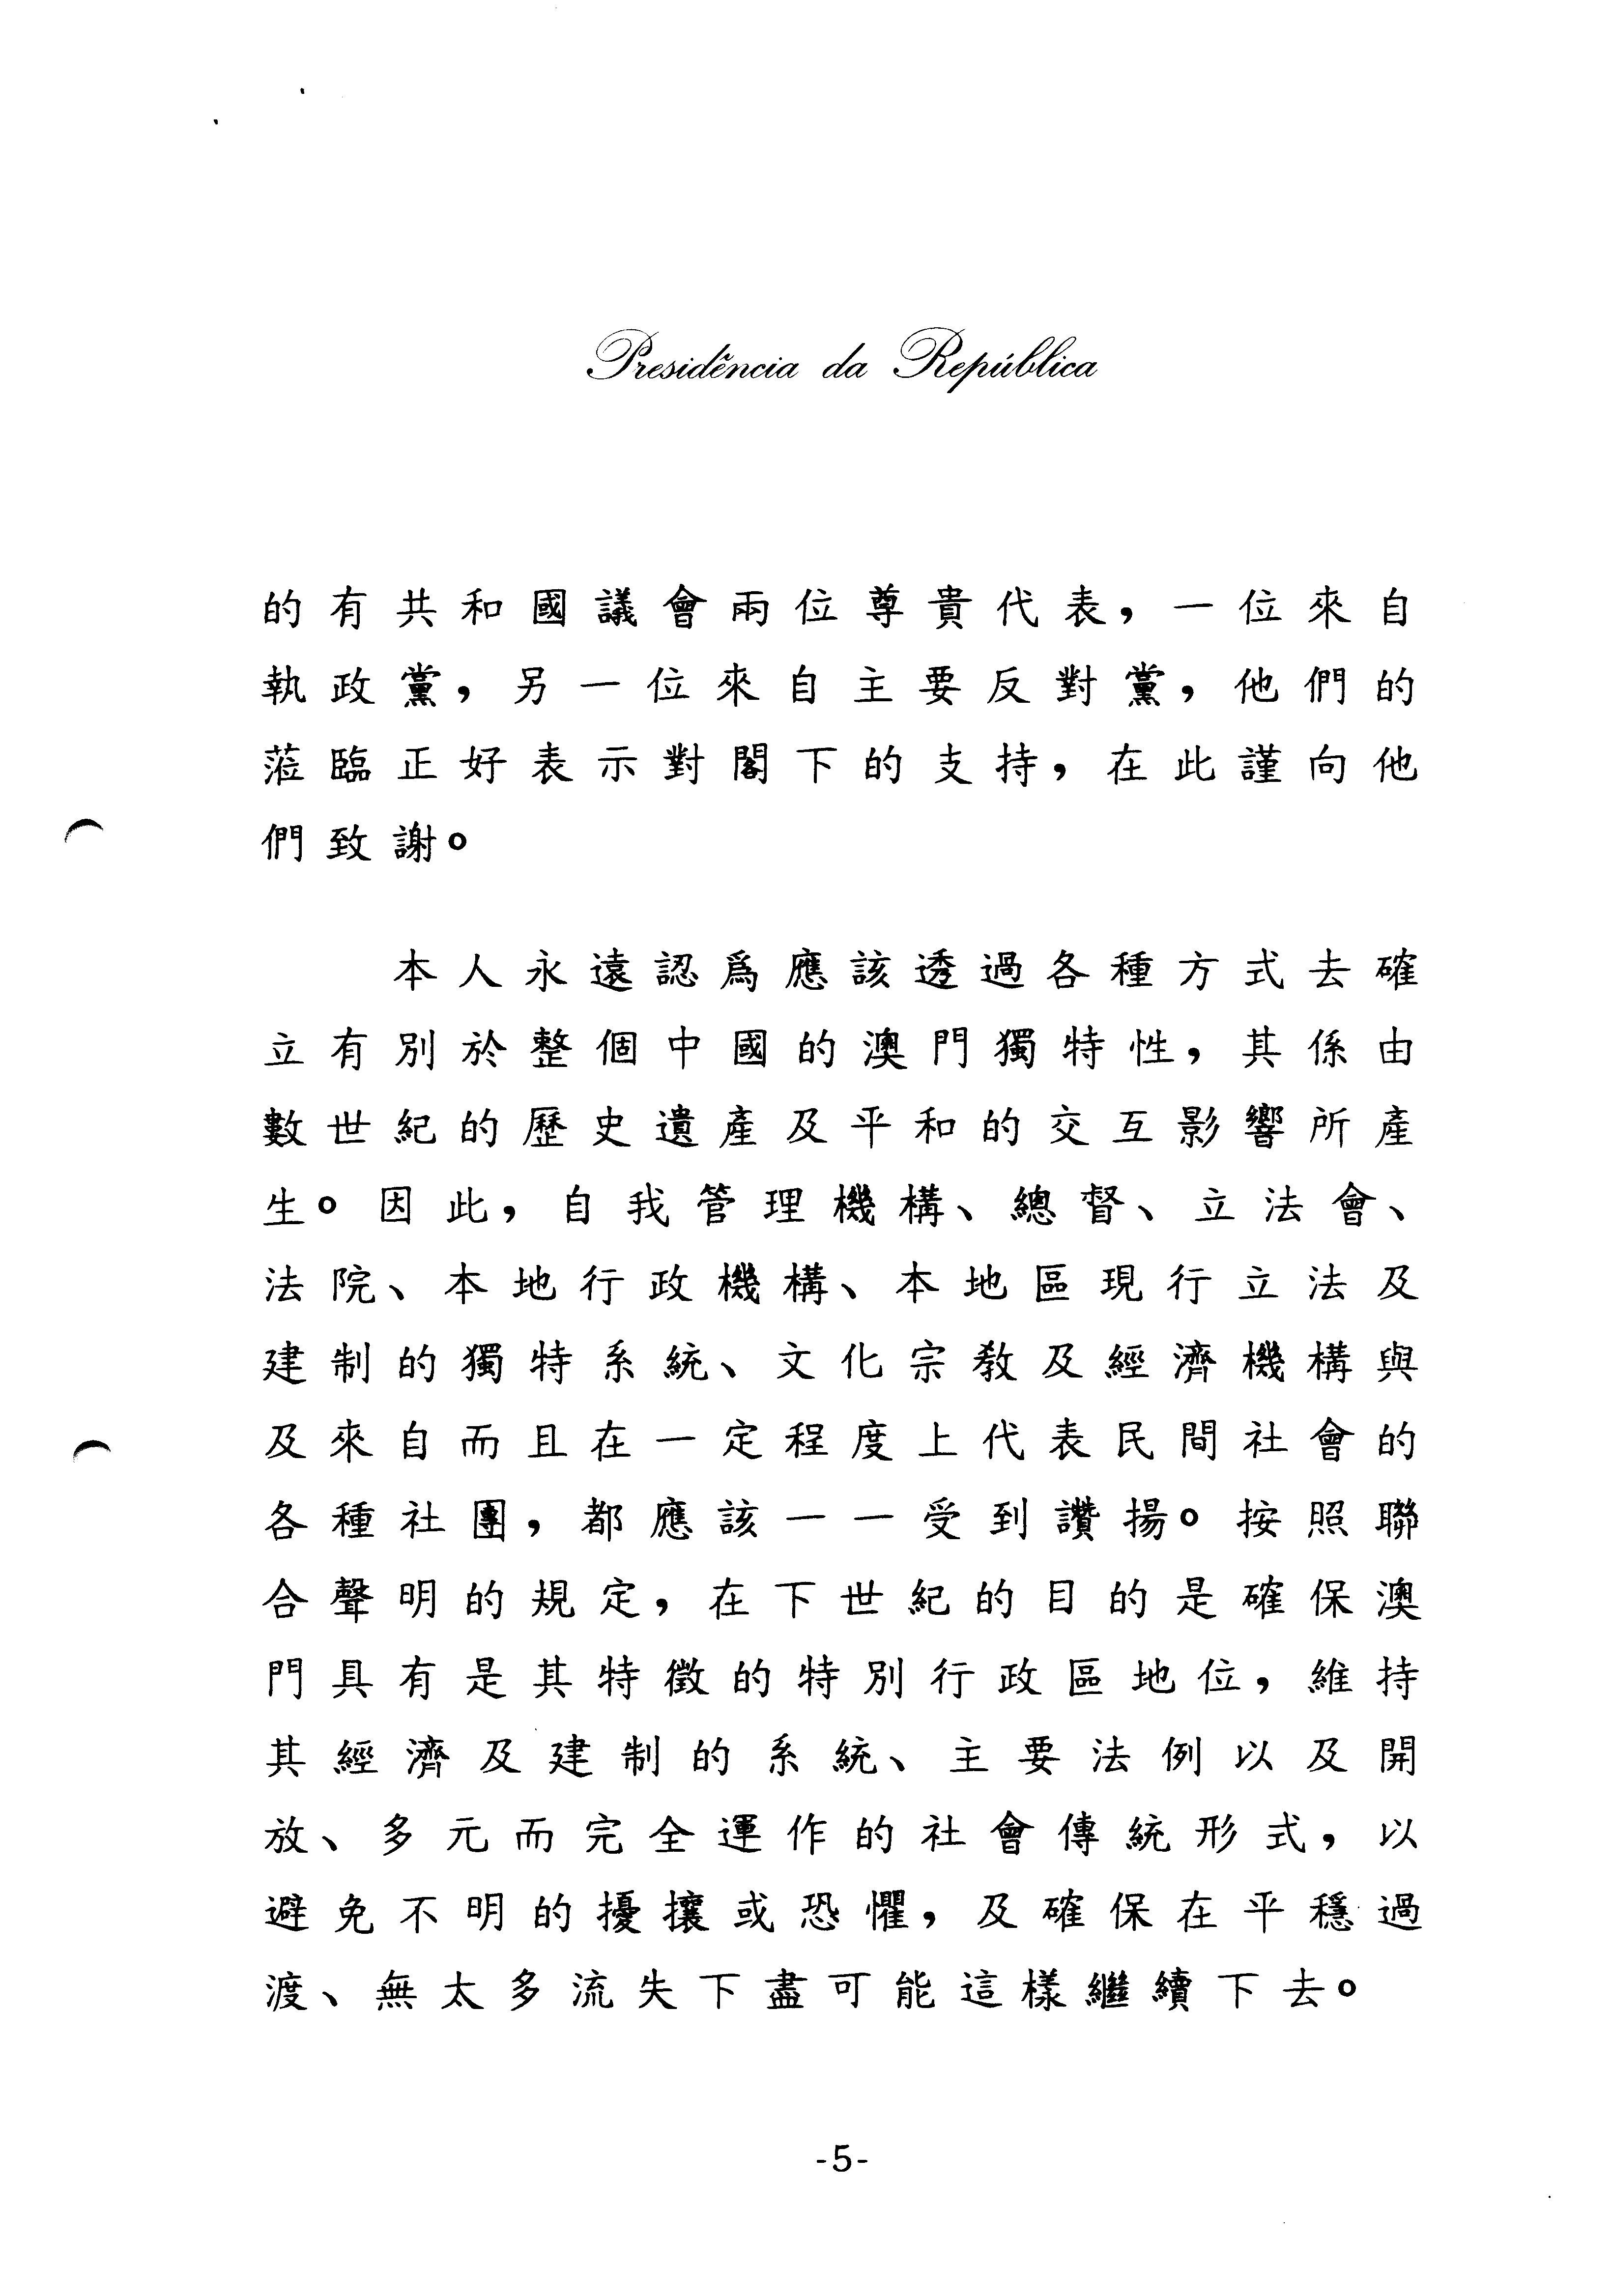 Presidência da República
的有共和國議會兩位尊貴代表，一位來自
執政黨，另一位來自主要反對黨，他們的
蒞臨正好表示對閣下的支持，在此謹向他
們致謝。
本人永遠認爲應該透過各種方式去確
立有別於整個中國的澳門獨特性，其係由
數世紀的歷史遺產及平和的交互影響所產
生。因此，自我管理機構、總督、立法會、
法院、本地行政機構、本地區現行立法及
建制的獨特系統、文化宗教及經濟機構與
及來自而且在一定程度上代表民間社會的
各種社團，都應該一一受到讚揚。按照聯
合聲明的規定，在下世紀的目的是確保澳
門具有是其特徵的特別行政區地位，維持
其經濟及建制的系統、主要法例以及開
放、多元而完全運作的社會傳統形式，以
避免不明的擾攘或恐懼，及確保在平穩過
渡、無太多流失下盡可能這樣繼續下去。
-5-